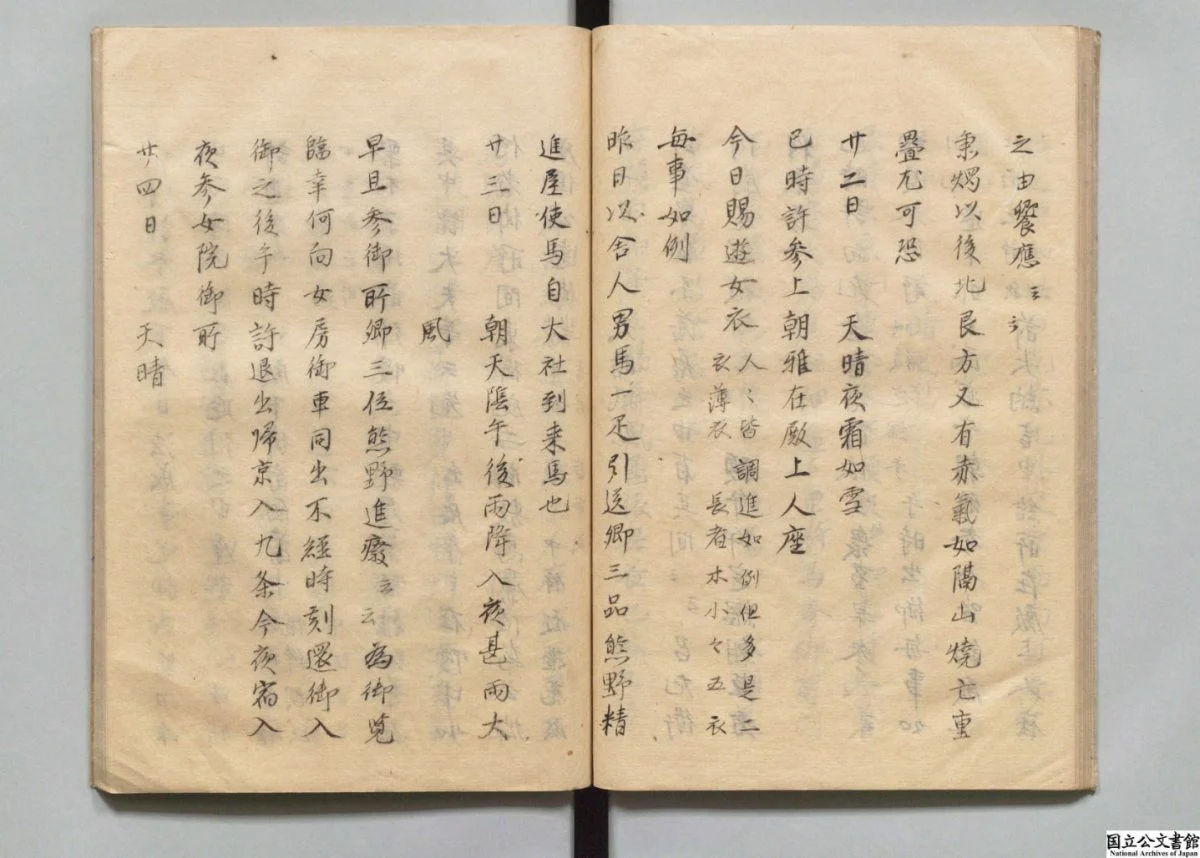 之由饗應云々
秉燭以後北艮方又有赤氣如隔山燒亡重
疊尤可恐
廿二日 天晴夜霜如雪
巳時許参上朝雅在殿上人座
今日賜遊女衣 人々皆調進如例但多是二
衣薄衣 長者木小々五衣
毎事如例
昨日以舎人男馬一疋引送卿三品熊野精
進屋使馬自大社到来馬也
廿三日 朝天陰午後雨降入夜甚雨大
風
早旦参御所卿三位熊野進癈云云為御覧
臨幸何向女房御車同出不經時刻還御入
御之後午時許退出帰京入九条今夜宿入
夜参女院御所
廿四日 天晴
国立公文書館
National Archives of Japan